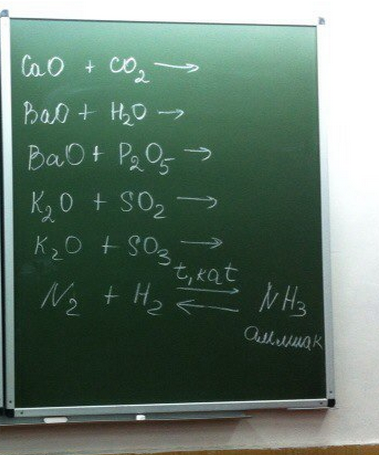 CaO + CO₂ →
BaO + H₂O →
BaO + P₂O₅ →
K₂O + SO₂ →
K₂O + SO₃ →
t, кат
N₂ + H₂ ⇄ NH₃
аммиак